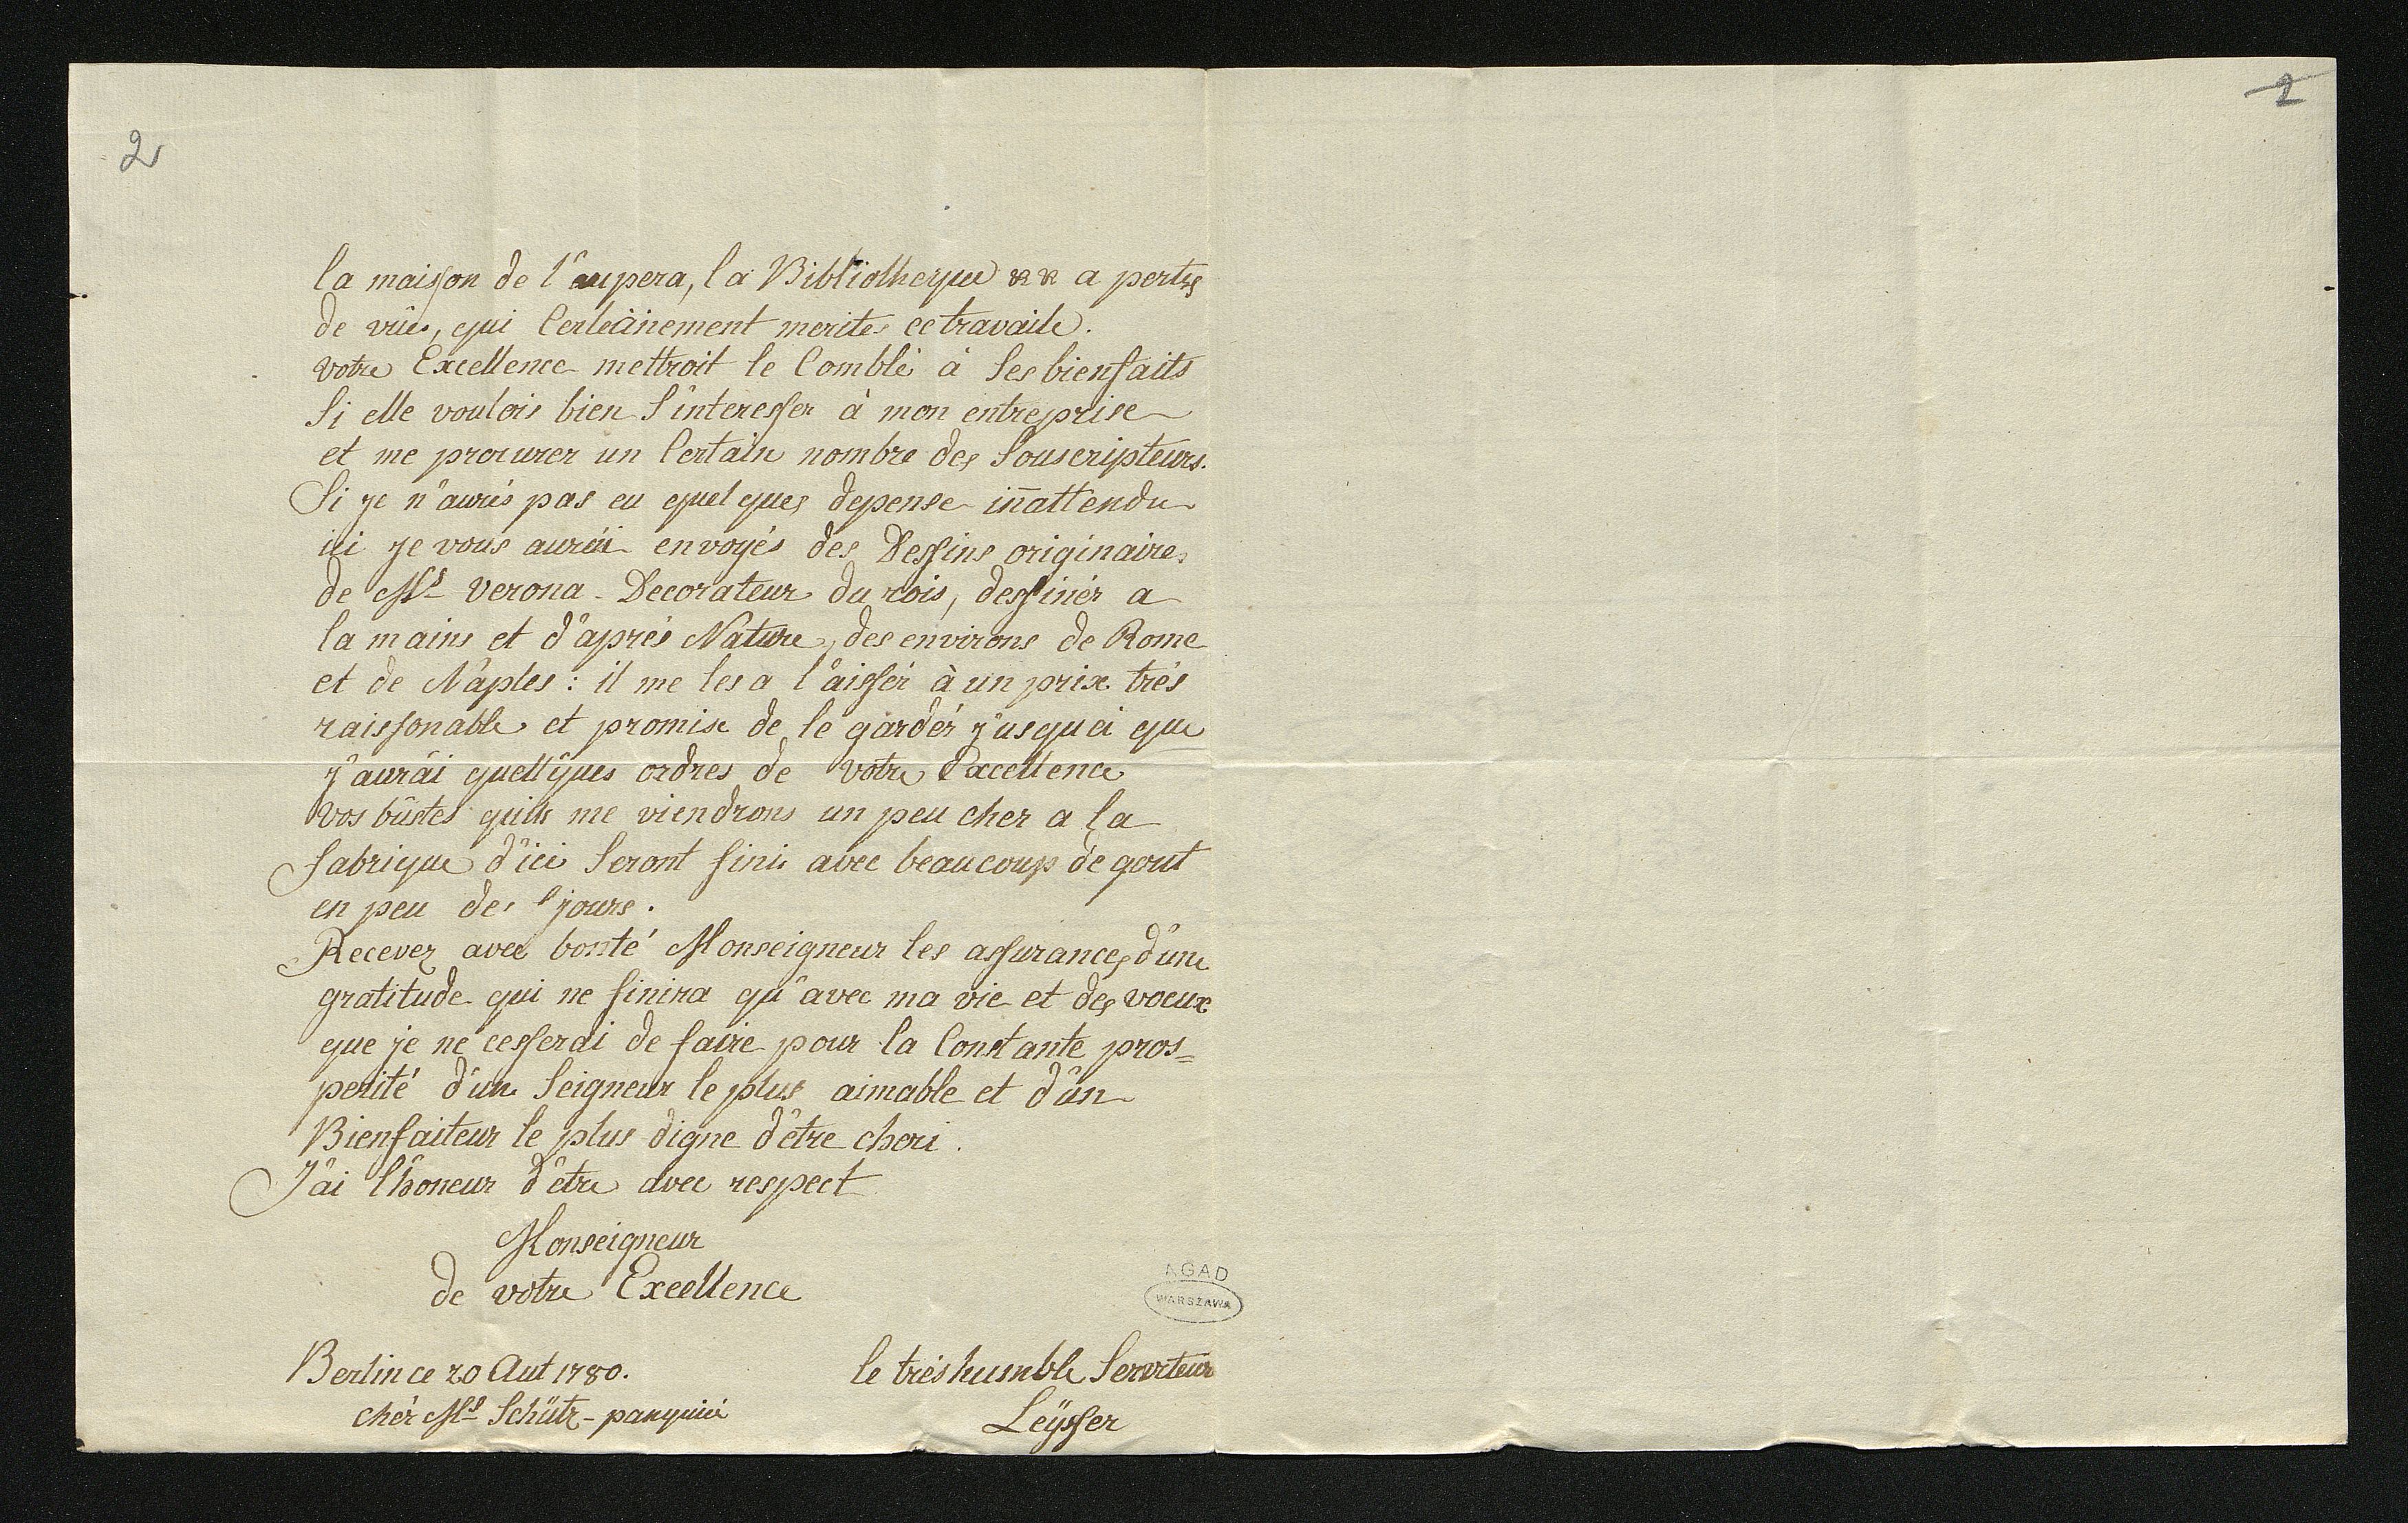 2
2
la maisson de l'aupera, la Bibliotheque && a pertes
de vûe, qui Certeânement merites ce travaile.
votre Excellence mettroit le Comblé à Ses bienfaits
Si elle voulois bien S'interesser à mon entreprise
et me procurer un Certain nombre des Souscripteurs.
Si je n'aurés pas eu quelques depense inattendu
ici je vous aurái envoyés des Dessins originaires
de Mr Verona Decorateur du rois, dessinér a
la mains et d'aprés Nature, des environs de Rome
et de Naples: il me les a l'aissér à un prix trés
raissonable et promise de le gardér j'usquci que
j'aurái quellques ordres de votre Excellence
Vos bûstes quils me viendrons un peu cher a la
fabrique d'ici Seront finis avec beaucoup de gout
en peu des jours.
Recevez avec bonté Monseigneur les assurances d'une
gratitude qui ne finira qu'avec ma vie et des voeux
que je ne cesserai de faire pour la Constante pros=
perité d'un Seigneur le plus aimable et d'un
Bienfaiteur le plus digne d'être cheri.
J'ai l'honeur d'être avec respect
Monseigneur
de votre Excellence
AGAD
WARSZAWA
Berlin ce 20 Aut 1780.
le trés humble Serviteur
chér Mr Schütz-panquié
Leÿsser